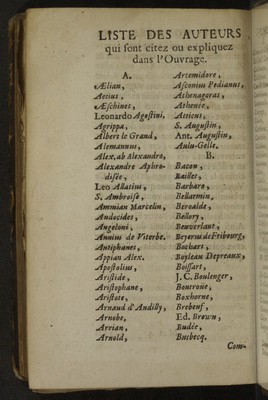 LISTE DES AUTEURS
qui ſont citez ou expliquez
dans l'Ouvrage.
A.
Ælian,
Aetius,
Æſchines,
Leonardo Ageſtini,
Agrippa,
Albert le Grand,
Alemannus,
Alex. ab Alexandro,
Alexandre Aphro-
diſée,
Leo Allatius,
S. Ambroiſe,
Ammian Marcelin,
Andocides,
Angeloni,
Annius de Viterbe.
Antiphanes,
Appian Alex.
Apoſtolius,
Ariſtide,
Ariſtophane,
Ariſtote,
Arnaud d'Andilly,
Arnobe,
Arrian,
Arnold,
Artemidore,
Aſconius Pedianus,
Athenagoras,
Athenée,
Atticus,
S. Auguſtin,
Ant. Auguſtin,
Aulu-Gelle.
B.
Bacon,
Baillet,
Barbaro,
Bellarmin,
Beroalde,
Bellory,
Beuverlant,
Beyerus de Fribourg,
Bochart,
Boyleau Depreaux,
Boiſſart,
J. C. Boulenger,
Boutroüe,
Boxhorne,
Brebeuf,
Ed. Brown,
Budée,
Busbecq.
Com-